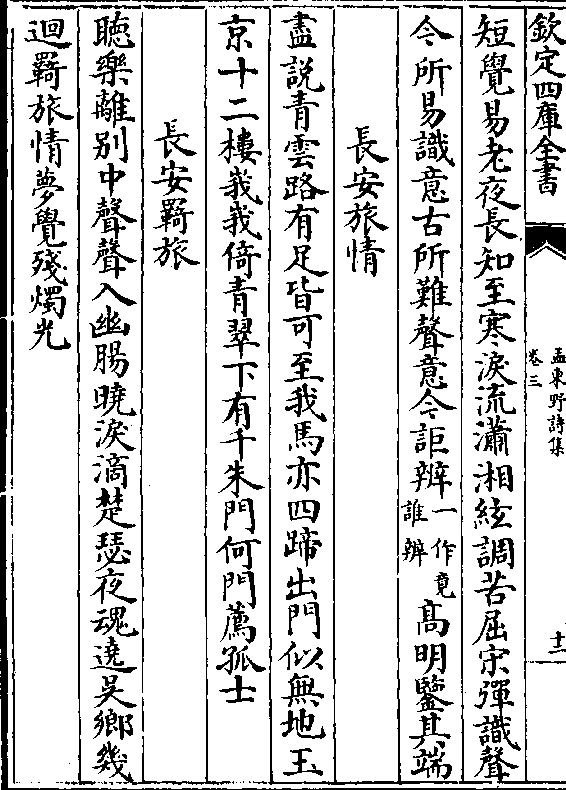 欽定四庫全書
孟東野詩集
卷三
十二
短覺易老夜長知至寒淚流瀟湘絃調苦屈宋彈識聲
今所易識意古所難聲意今詎辨一作竟誰辨高明鑒其端
長安旅情
盡說青雲路有足皆可至我馬亦四蹄出門似無地玉
京十二樓峩峩倚青翠下有千朱門何門薦孤士
長安羇旅
聴樂離别中聲聲入幽腸曉淚滴楚瑟夜魂遶吳鄉幾
迴羇旅情夢覺殘燭光